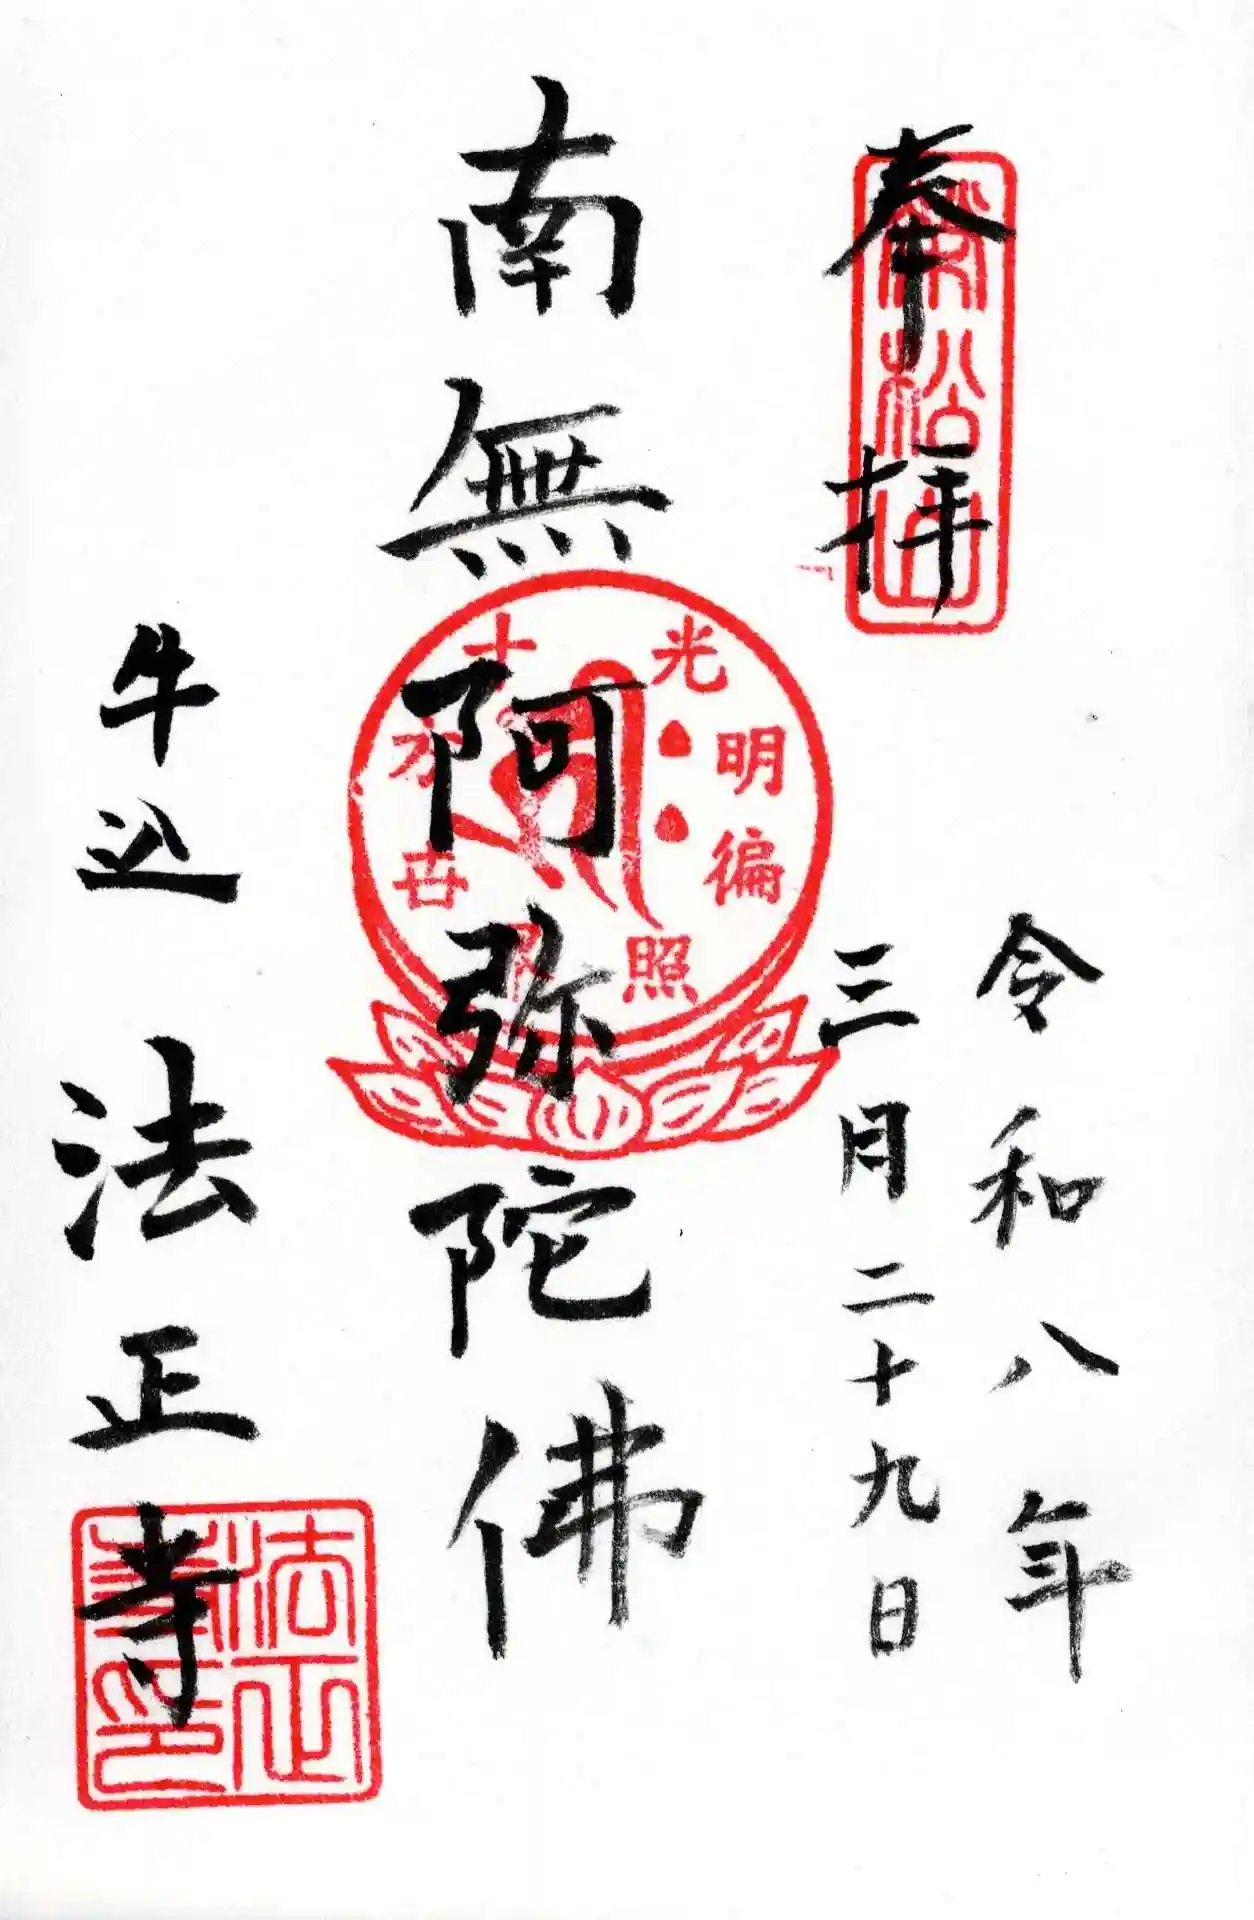 奉拝
令和八年
三月二十九日
南無阿弥陀佛
光明徧照
十方世
牛込
法正寺
松山
法正寺印